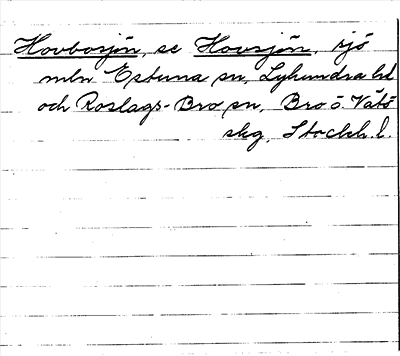 Hovbosjön, se Hovsjön, sjö
mln Estuna sn, Lyhundra hd
och Roslags-Bro sn, Bro ö. Vätö
skg, Stockh. l.